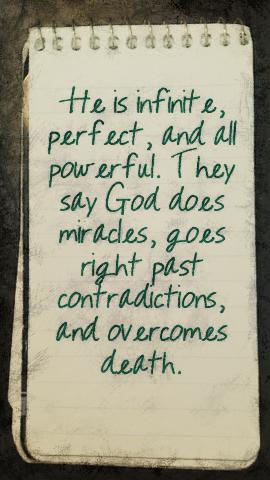 He is infinite,
perfect, and all
powerful. They
say God does
miracles, goes
right past
contradictions,
and overcomes
death.